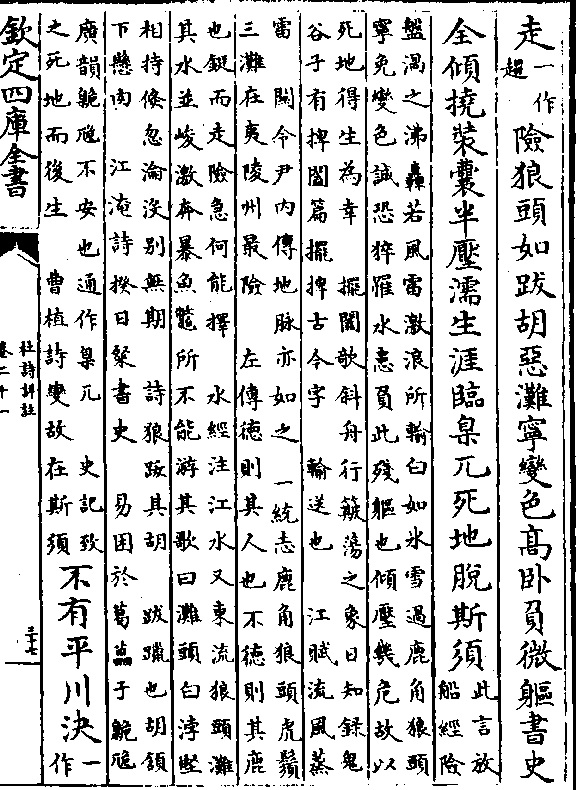 走一作超險狼頭如跋胡惡灘寧變色高臥負微軀書史
全傾撓裝囊半壓濡生涯臨臬兀死地脫斯須此言放
船經險
盤渦之沸轟若風雷激浪所輸白如氷雪過鹿角狼頭
寧免變色誠恐猝罹水患負此殘軀也傾壓幾危故以
死地得生為幸 擺闔歌斜舟行簸蕩之象日知錄鬼
谷子有捭闔篇擺捭古今字 輸送也 江賦流風蒸
雷 關令尹內傳地脉亦如之 一統志鹿角狼頭虎鬚
三灘在夷陵州最險 左傳德則其人也不德則其鹿
也鋌而走險急何能擇 水經注江水又東流狼頭灘
其水並峻激奔暴魚鼈所不能游其歌曰灘頭白浡堅
相持倏忽淪沒別無期 詩狼跋其胡 跋躐也胡頷
下懸肉 江淹詩揆日粲書史 易困於葛藟于臲卼
廣韻臲卼不安也通作臬兀 史記致
之死地而後生 曹植詩變故在斯須
不有平川決一
作
欽定四庫全書
杜詩詳註
卷二十一
三十七